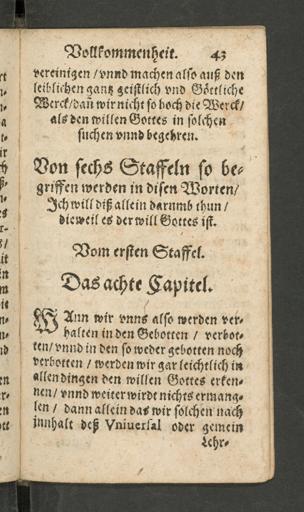 Vollkommenheit. 43
vereinigen / vnnd machen also auß den
leiblichen gantz geistlich vnd Göttliche
Werck / dañ wir nicht so hoch die Werck /
als den willen Gottes in solchen
suchen vnnd begehren.
Von sechs Staffeln so be-
griffen werden in disen Worten /
Ich will diß allein darumb thun /
dieweil es der will Gottes ist.
Vom ersten Staffel.
Das achte Capitel.
WAnn wir vnns also werden ver-
halten in den Gebotten / verbot-
ten / vnnd in den so weder gebotten noch
verbotten / werden wir gar leichtlich in
allen dingen den willen Gottes erken-
nen / vnnd weiter wirdt nichts ermang-
len / dann allein das wir solchen nach
innhalt deß Vniuersal oder gemein
Lehr-